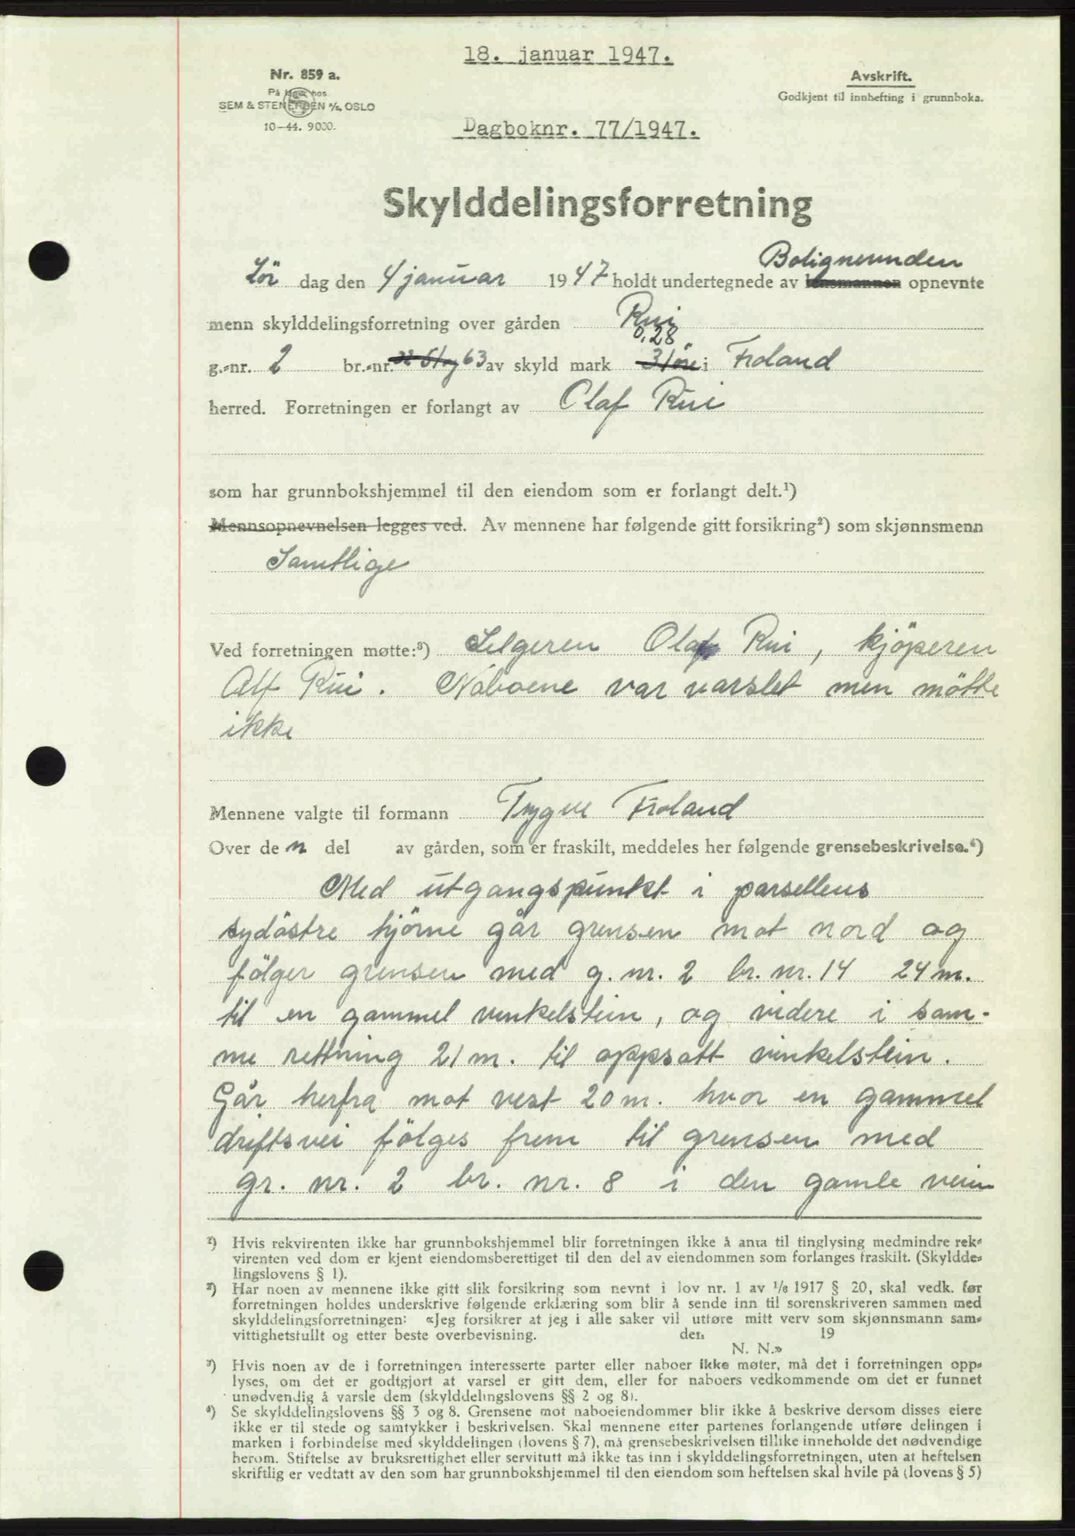 18. januar 1947.
Nr. 859 a.
På lager hos
SEM & STENERSEN A/S, OSLO
10-44. 9000.
Avskrift.
Godkjent til innhefting i grunnboka.
Dagboknr. 77/1947.
Skylddelingsforretning
Lör dag den 4 januar 1947 holdt undertegnede av Bolignevnden lensmannen opnevnte
menn skylddelingsforretning over gården Rui
g.-nr. 2 br.-nr. 63 av skyld mark 0,28 31 öre i Froland
herred. Forretningen er forlangt av Olaf Rui
som har grunnbokshjemmel til den eiendom som er forlangt delt.¹)
Mennsopnevnelsen legges ved. Av mennene har følgende gitt forsikring²) som skjønnsmenn
Samtlige
Ved forretningen møtte:³) Selgeren Olaf Rui, kjöperen
Alf Rui. Naboene var varslet men mötte
ikke
Mennene valgte til formann Trygve Froland
Over den del av gården, som er fraskilt, meddeles her følgende grensebeskrivelse.⁴)
Med utgangspunkt i parsellens
sydöstre hjörne går grensen mot nord og
fölger grensen med g. nr. 2 br. nr. 14 24 m.
til en gammel vinkelstein, og videre i sam-
me rettning 21 m. til oppsatt vinkelstein.
Går herfra mot vest 20 m. hvor en gammel
driftsvei fölges frem til grensen med
gr. nr. 2 br. nr. 8 i den gamle veien
¹) Hvis rekvirenten ikke har grunnbokshjemmel blir forretningen ikke å anta til tinglysing medmindre rek-
virenten ved dom er kjent eiendomsberettiget til den del av eiendommen som forlanges fraskilt. (Skyldde-
lingslovens § 1).
²) Har noen av mennene ikke gitt slik forsikring som nevnt i lov nr. 1 av 1/6 1917 § 20, skal vedk. før
forretningen holdes underskrive følgende erklæring som blir å sende inn til sorenskriveren sammen med
skylddelingsforretningen: «Jeg forsikrer at jeg i alle saker vil utføre mitt verv som skjønnsmann sam-
vittighetsfullt og etter beste overbevisning. den 19
N. N.»
³) Hvis noen av de i forretningen interesserte parter eller naboer ikke møter, må det i forretningen opp-
lyses, om det er godtgjort at varsel er gitt dem, eller for naboers vedkommende om det er funnet
unødvendig å varsle dem (skylddelingslovens §§ 2 og 8).
⁴) Se skylddelingslovens §§ 3 og 8. Grensene mot naboeiendommer blir ikke å beskrive dersom disses eiere
ikke er til stede og samtykker i beskrivelsen. Skal mennene etter partenes forlangende utføre delingen i
marken i forbindelse med skylddelingen (lovens § 7), må grensebeskrivelsen tillike inneholde det nødvendige
herom. Stiftelse av bruksrettighet eller servitutt må ikke tas inn i skylddelingsforretningen, uten at heftelsen
skriftlig er vedtatt av den som har grunnbokshjemmel til den eiendom som heftelsen skal hvile på (lovens § 5)